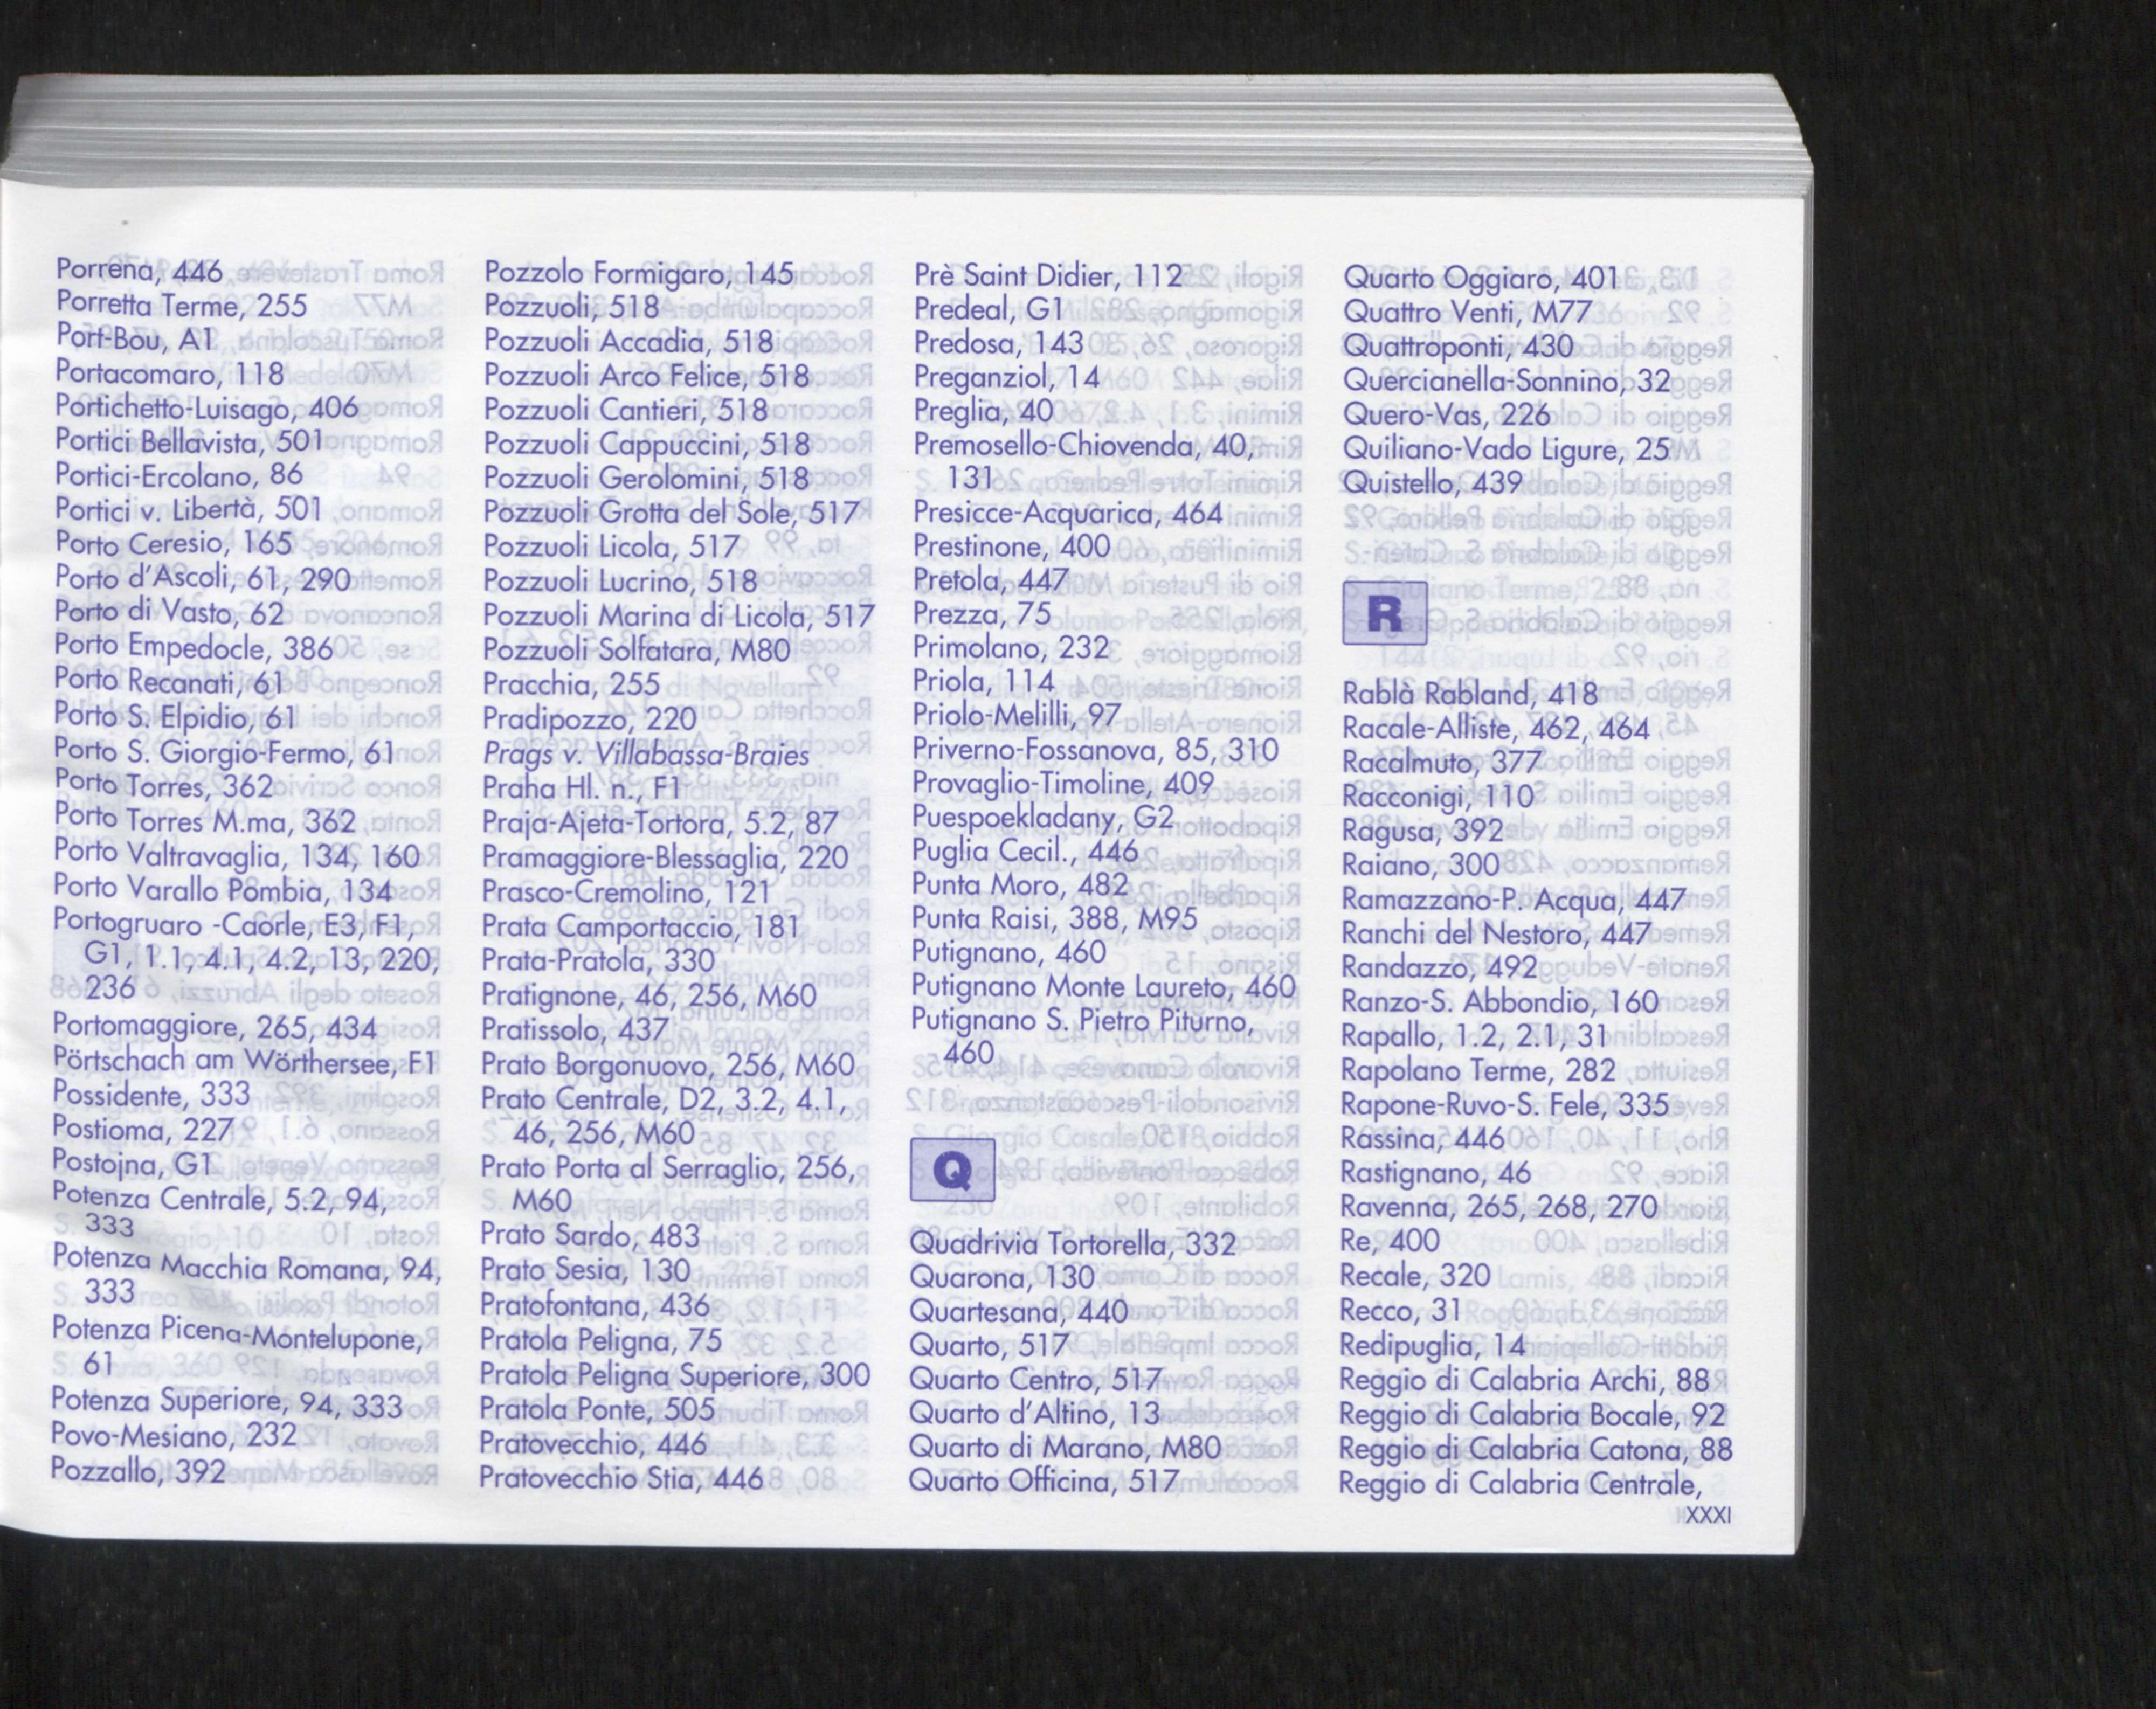 Porrena, 446
Porretta Terme, 255
Port-Bou, A1
Portacomaro, 118
Portichetto-Luisago, 406
Portici Bellavista, 501
Portici-Ercolano, 86
Portici v. Libertà, 501
Porto Ceresio, 165
Porto d'Ascoli, 61, 290
Porto di Vasto, 62
Porto Empedocle, 386
Porto Recanati, 61
Porto S. Elpidio, 61
Porto S. Giorgio-Fermo, 61
Porto Torres, 362
Porto Torres M.ma, 362
Porto Valtravaglia, 134, 160
Porto Varallo Pombia, 134
Portogruaro -Caorle, E3, F1,
G1, 1.1, 4.1, 4.2, 13, 220,
236
Portomaggiore, 265, 434
Pörtschach am Wörthersee, F1
Possidente, 333
Postioma, 227
Postojna, G1
Potenza Centrale, 5.2, 94,
333
Potenza Macchia Romana, 94,
333
Potenza Picena-Montelupone,
61
Potenza Superiore, 94, 333
Povo-Mesiano, 232
Pozzallo, 392
Pozzolo Formigaro, 145
Pozzuoli, 518
Pozzuoli Accadia, 518
Pozzuoli Arco Felice, 518
Pozzuoli Cantieri, 518
Pozzuoli Cappuccini, 518
Pozzuoli Gerolomini, 518
Pozzuoli Grotta del Sole, 517
Pozzuoli Licola, 517
Pozzuoli Lucrino, 518
Pozzuoli Marina di Licola, 517
Pozzuoli-Solfatara, M80
Pracchia, 255
Pradipozzo, 220
Prags v. Villabassa-Braies
Praha Hl. n., F1
Praja-Ajeta-Tortora, 5.2, 87
Pramaggiore-Blessaglia, 220
Prasco-Cremolino, 121
Prata Camportaccio, 181
Prata-Pratola, 330
Pratignone, 46, 256, M60
Pratissolo, 437
Prato Borgonuovo, 256, M60
Prato Centrale, D2, 3.2, 4.1,
46, 256, M60
Prato Porta al Serraglio, 256,
M60
Prato Sardo, 483
Prato Sesia, 130
Pratofontana, 436
Pratola Peligna, 75
Pratola Peligna Superiore, 300
Pratola Ponte, 505
Pratovecchio, 446
Pratovecchio Stia, 446
Prè Saint Didier, 112
Predeal, G1
Predosa, 143
Preganziol, 14
Preglia, 40
Premosello-Chiovenda, 40,
131
Presicce-Acquarica, 464
Prestinone, 400
Pretola, 447
Prezza, 75
Primolano, 232
Priola, 114
Priolo-Melilli, 97
Priverno-Fossanova, 85, 310
Provaglio-Timoline, 409
Puespoekladany, G2
Puglia Cecil., 446
Punta Moro, 482
Punta Raisi, 388, M95
Putignano, 460
Putignano Monte Laureto, 460
Putignano S. Pietro Piturno,
460
Q
Quadrivia Tortorella, 332
Quarona, 130
Quartesana, 440
Quarto, 517
Quarto Centro, 517
Quarto d'Altino, 13
Quarto di Marano, M80
Quarto Officina, 517
Quarto Oggiaro, 401
Quattro Venti, M77
Quattroponti, 430
Quercianella-Sonnino, 32
Quero-Vas, 226
Quiliano-Vado Ligure, 25
Quistello, 439
R
Rablà Rabland, 418
Racale-Alliste, 462, 464
Racalmuto, 377
Racconigi, 110
Ragusa, 392
Raiano, 300
Ramazzano-P. Acqua, 447
Ranchi del Nestoro, 447
Randazzo, 492
Ranzo-S. Abbondio, 160
Rapallo, 1.2, 2.1, 31
Rapolano Terme, 282
Rapone-Ruvo-S. Fele, 335
Rassina, 446
Rastignano, 46
Ravenna, 265, 268, 270
Re, 400
Recale, 320
Recco, 31
Redipuglia, 14
Reggio di Calabria Archi, 88
Reggio di Calabria Bocale, 92
Reggio di Calabria Catona, 88
Reggio di Calabria Centrale,
XXXI